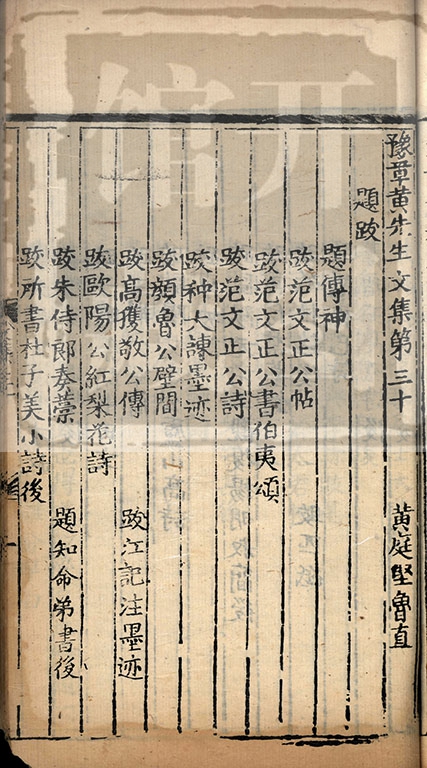 豫章黄先生文集第三十　黄庭堅魯直
題跋
題傳神
跋范文正公帖
跋范文正公書伯夷頌
跋范文正公詩
跋种大諫墨迹
跋顔魯公壁間
跋髙獲敬公傳　跋江記注墨迹
跋歐陽公紅梨花詩
跋朱侍郎奏藁　題知命弟書後
跋所書杜子美小詩後